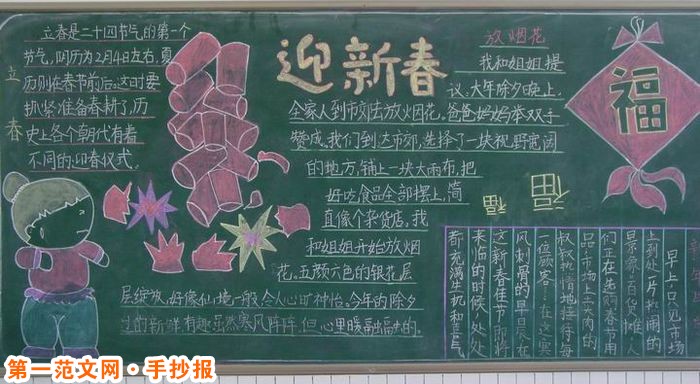 立春
立春是二十四节气的第一个
节气,阴历为2月4日左右,夏
历则在春节前后。这时要
抓紧准备春耕了,历
史上各个朝代有着
不同的迎春仪式。
迎新春
放烟花
我和姐姐提
议,大年除夕晚上,
全家人到市郊去放烟花。爸爸妈妈举双手
赞成。我们到达市郊,选择了一块视野宽阔
的地方,铺上一块大雨布,把
好吃食品全部摆上,简
直像个杂货店,我
和姐姐开始放烟
花。五颜六色的银花层
层绽放,好像仙境一般,令人心旷神怡。今年的除夕
过的新鲜有趣。虽然寒风阵阵,但心里暖融融的。
福
福
福
早上只见市场
上到处一片热闹的
景象,百货摊人
们正在选购春节用
品,市场上卖肉的
叔叔热情地招待每
一位顾客。在这寒
风刺骨的早晨,在
这新春佳节即将
来临的时候,处处
都充满生机和喜气
第一范文网·手抄报